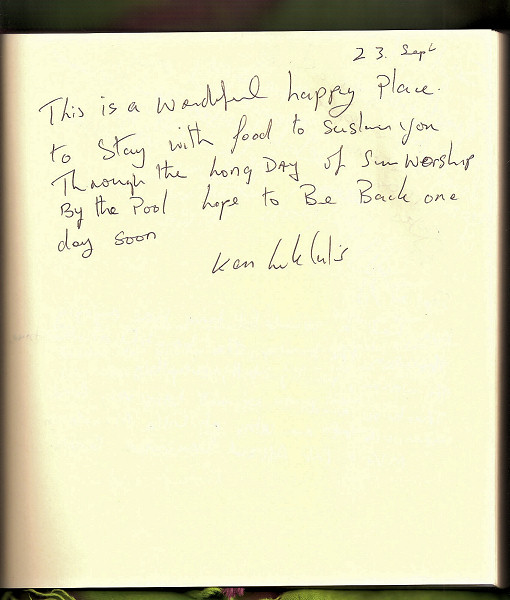 23. Sept
This is a wonderful happy Place.
to Stay with food to sustain you
Through the Long DAY of Sun Worship
By the Pool hope to Be Back one
day soon
Ken